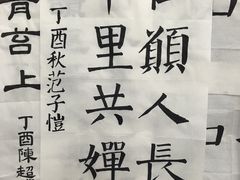 願人長
里共嬋
丁酉秋范子愷
青苔上
丁酉陳超